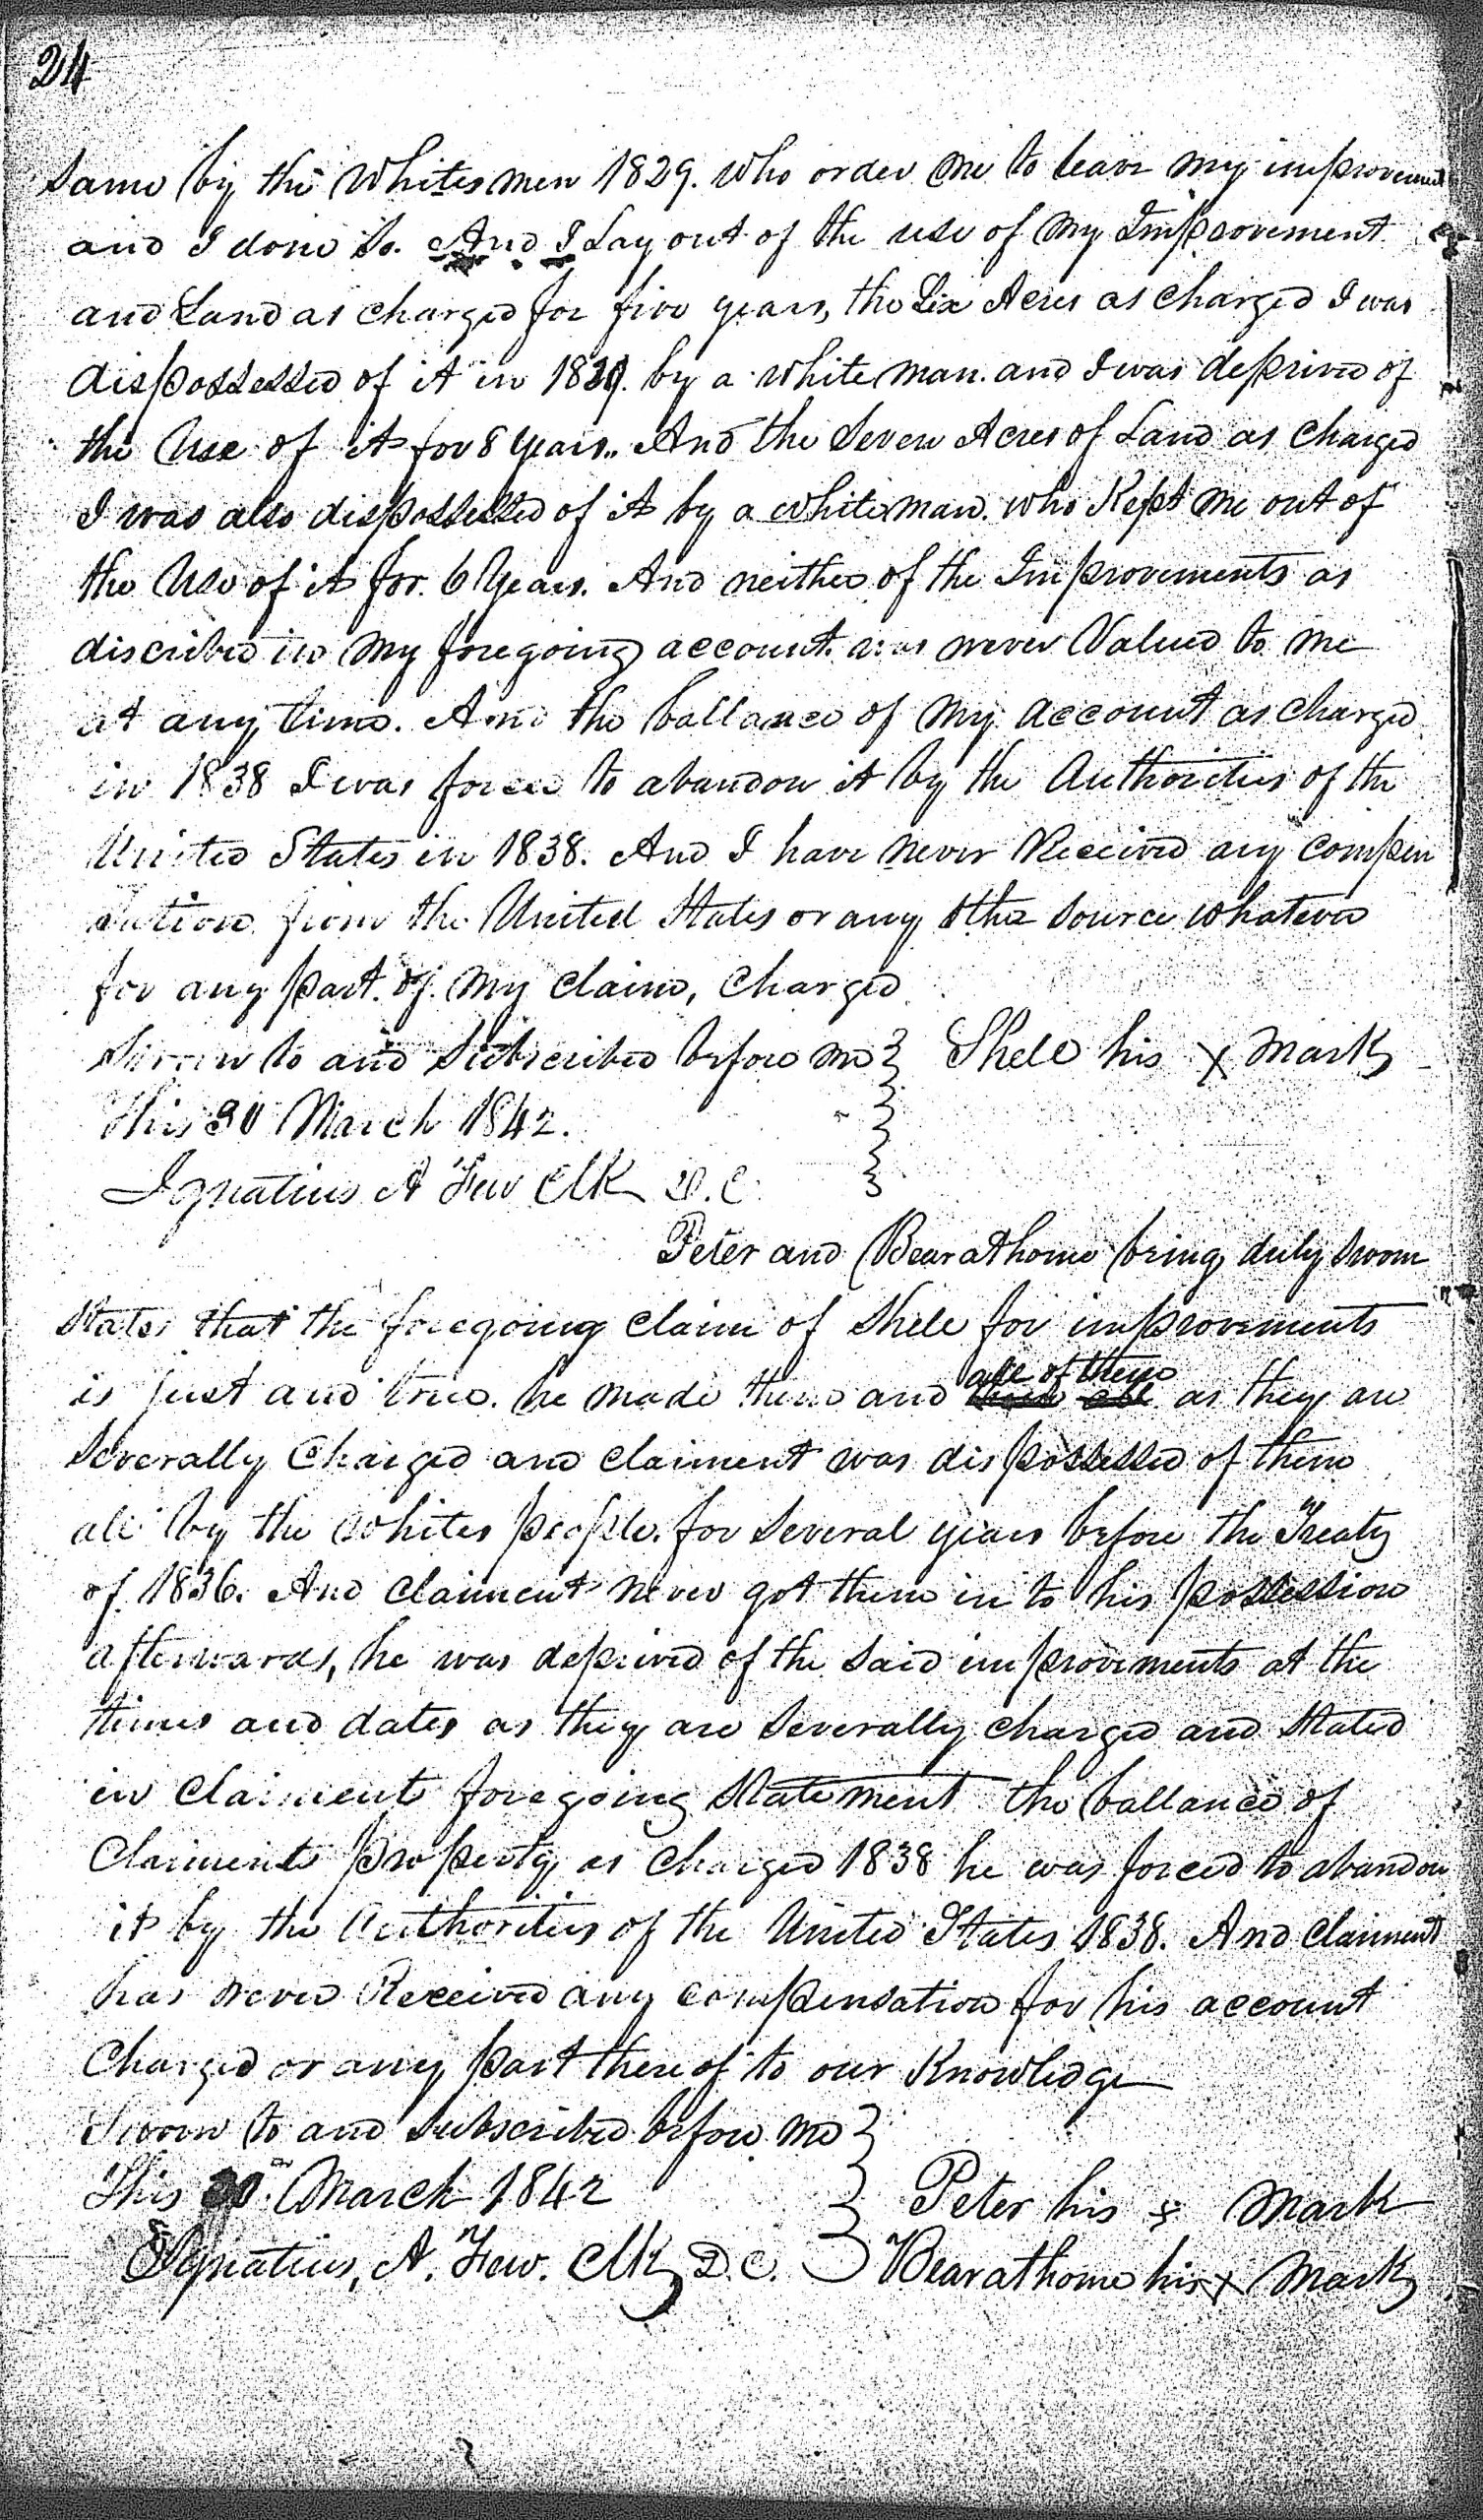 24
Same by the Whites men 1829. Who order me to leave my improvement
and I done So. And I Lay out of the use of My Improvement
and Land as charged for five years, the Six Acres as charged I was
dispossessed of it in 1829. by a white man. and I was deprived of
the Use of it for 8 Years.. And the Seven Acres of Land as Charged
I was also dispossessed of it by a white man. who Kept me out of
the Use of it for. 6 Years. And neither of the Improvements as
discribed in My foregoing account. was never Valued to me
at any time. And the ballance of My account as charged
in 1838 I was forced to abandon it by the Authorities of the
United States in 1838. And I have never Received any compen
sation from the United States or any other Source whatever
for any part. of. My Claim, Charged
Sworn to and Subscribed before me Shele his x mark
This 30 March 1842.
Ignatius A Few Clk D. C.
Peter and Bearathome being duly Sworn
States that the foregoing Claim of Shele for improvements
is just and true. he made them and all of them as they are
Severally Charged and Claiment was dispossessed of them
all by the Whites people. for Several years before the Treaty
of 1836. And Claiment never got them in to his possession
afterwards, he was deprived of the Said improvements at the
times and dates as they are Severally charged and Stated
in Claiments foregoing Statement the ballance of
Claiments property as charged 1838 he was forced to abandon
it by the Authorities of the United States 1838. And Claiment
has never Received any compensation for his account
Charged or any part there of to our Knowledge
Sworn to and Subscribed before me
This 30th March 1842 Peter his x mark
Ignatius, A. Few. Clk D. C. Bearathome his x mark